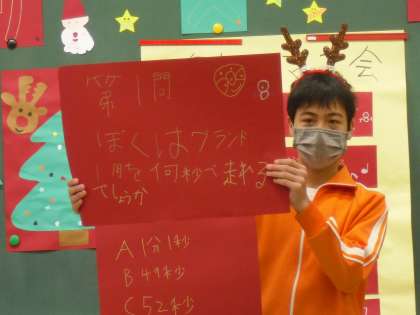 第1問
ぼくはグランド
1周を何秒で走れる
でしょうか
A 1分1秒
B 49秒
C 52秒
会